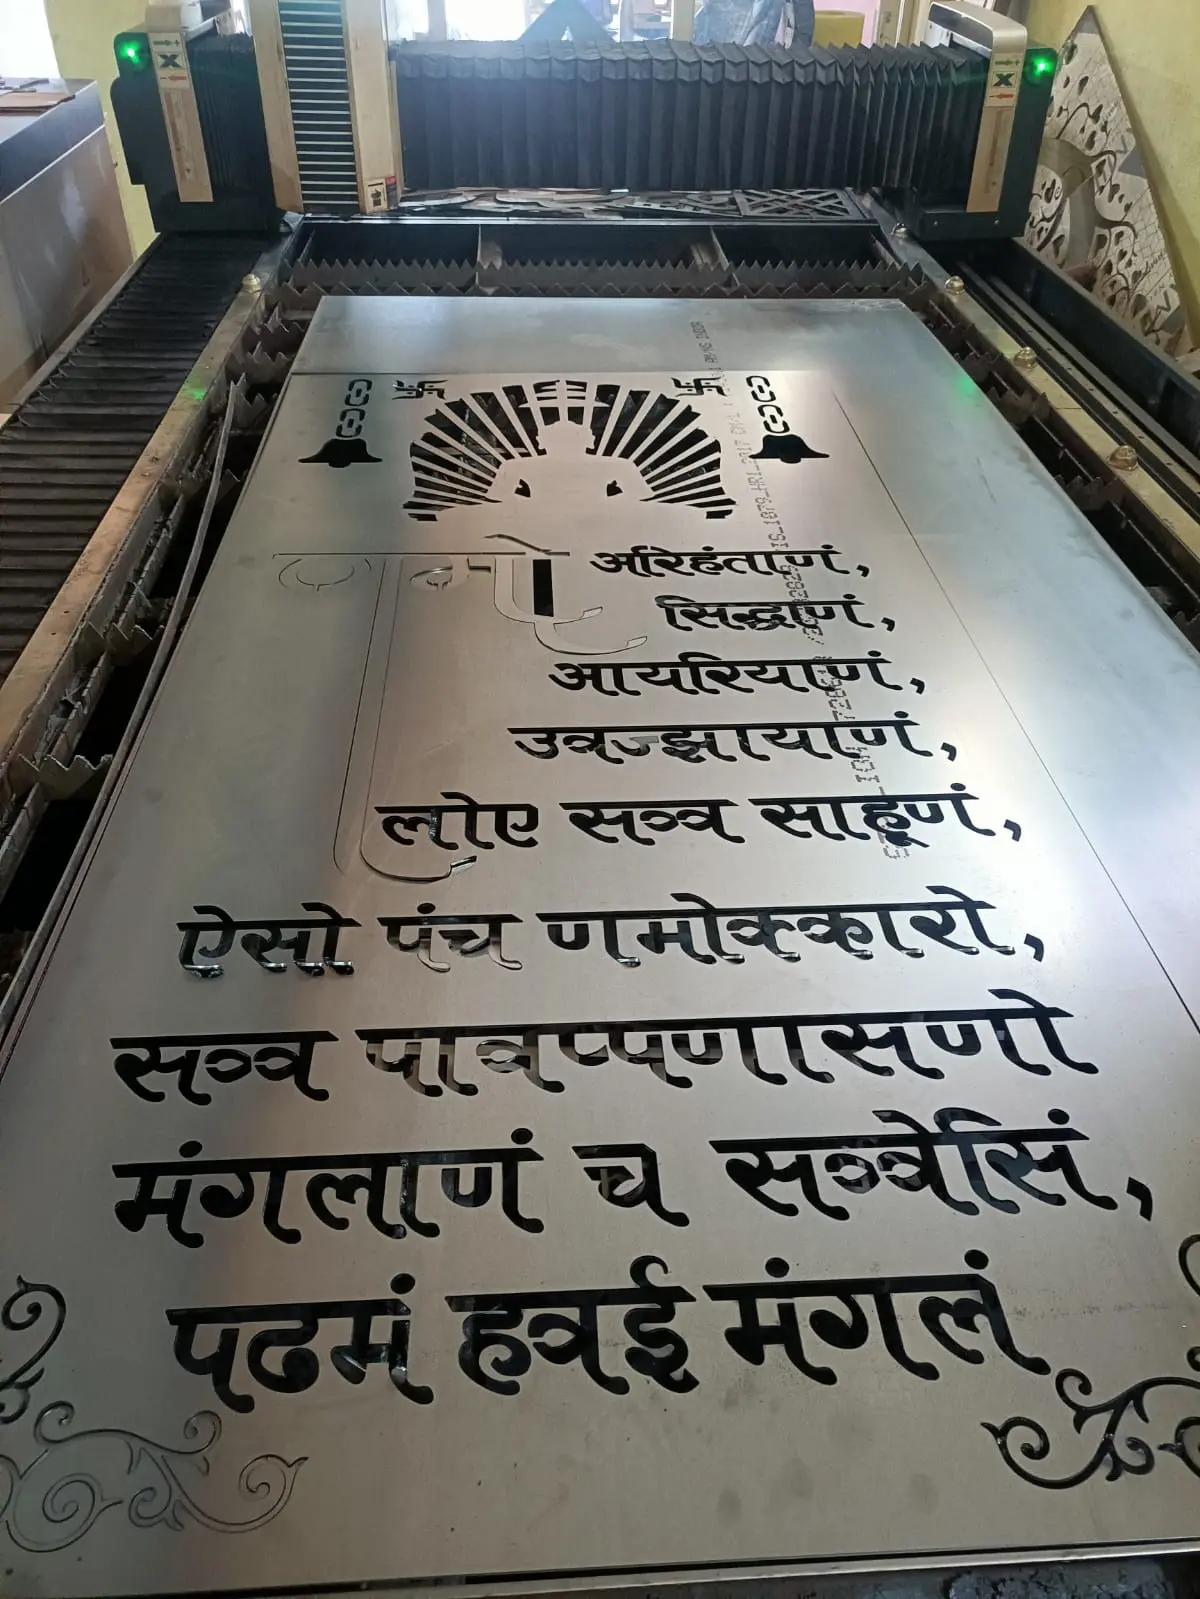 X
X
णमो
अरिहंताणं,
सिद्धाणं,
आयरियाणं,
उवज्झायाणं,
लोए सव्व साहूणं,
ऐसो पंच णमोक्कारो,
सव्व पावप्पणासणो
मंगलाणं च सव्वेसिं,
पढमं हवई मंगलं